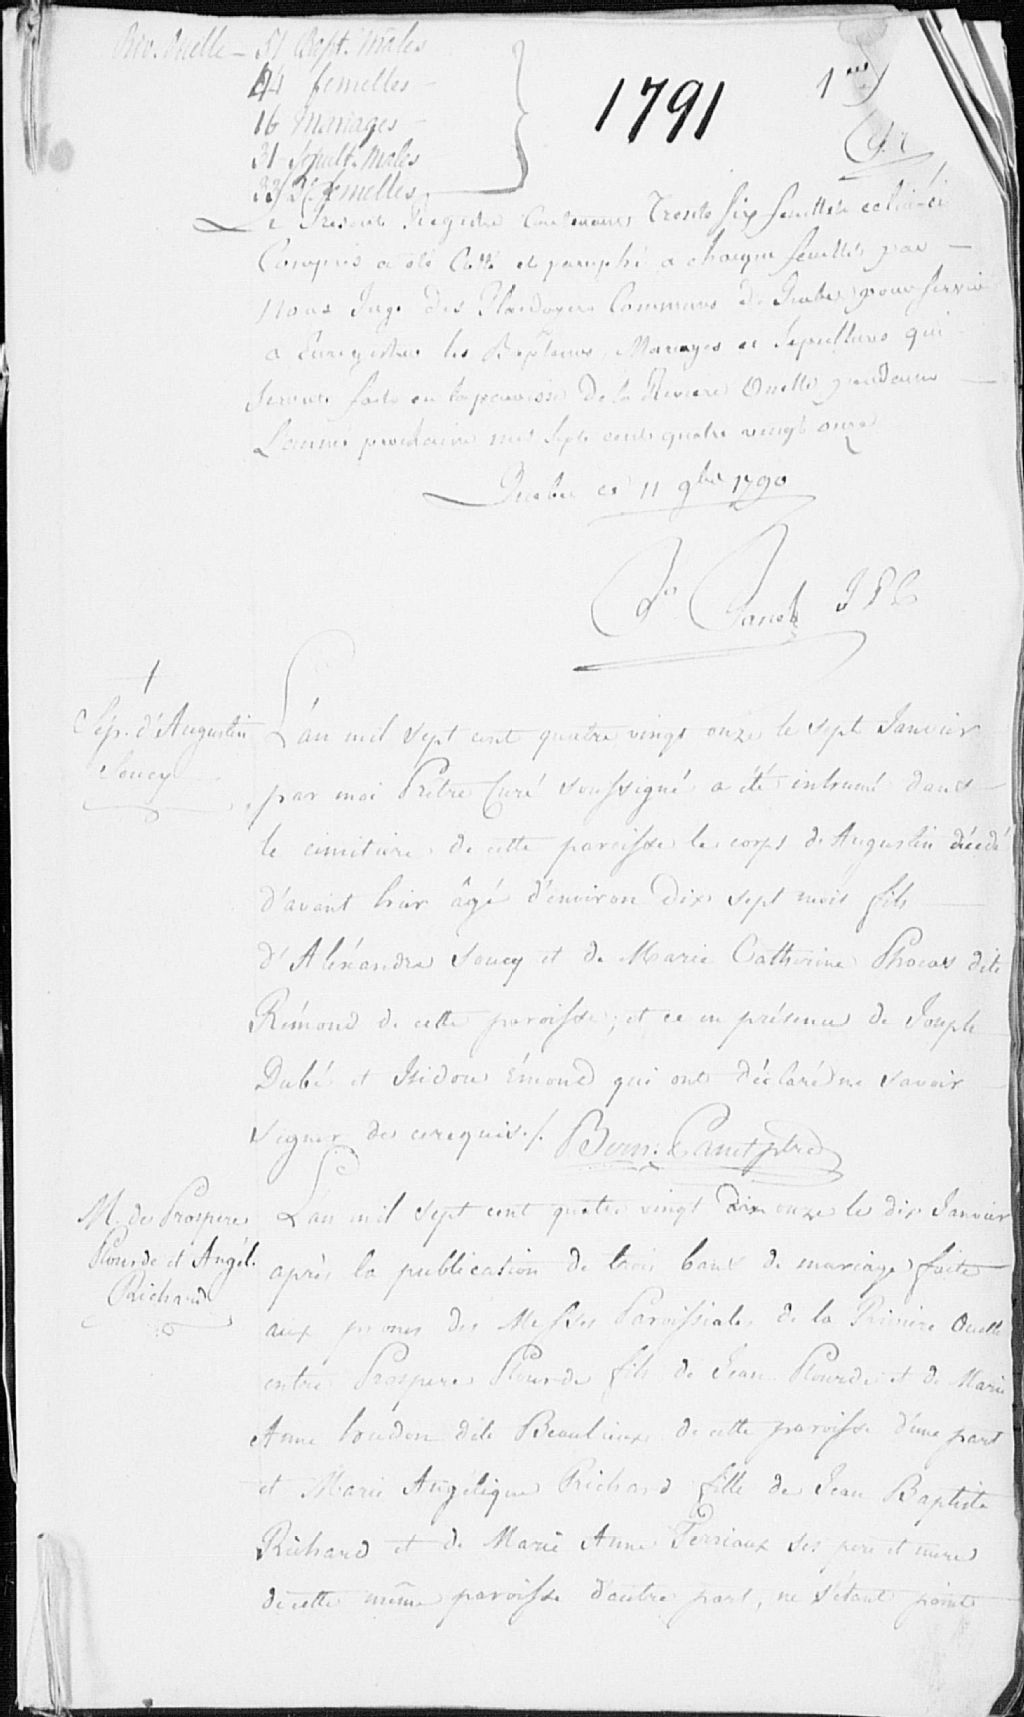 Riv. Ouelle - 51 Bapt. Mâles
44 femelles -
16 Mariages -
31 Sépult. Mâles
33 femelles
1791
1er
Le Present Registre Contenant Trente six feuillets celui-ci
Compris a été Cotté et paraphé a chaque feuillet par
Nous Juge des Plaidoyers Communs de Quebec pour servir
a Enregistrer les Baptemes, Mariages et Sepultures qui
seront faits en la paroisse De la Riviere Ouelle pendant
L'année prochaine mil sept cents quatre vingt onze
Quebec ce 11 9bre 1790
Panet JPC
1
Sép. d'Augustin
Soucy
L'an mil sept cent quatre vingt onze le sept Janvier
par moi Prêtre Curé soussigné a été inhumé dans
le cimitiere de cette paroisse le corps de Augustin décédé
d'avant hier âgé d'environ dix sept mois fils
d'Aléxandre Soucy et de Marie Catherine Phocas dite
Rémond de cette paroisse, et ce en présence de Joseph
Dubé et Isidore Emond qui ont déclaré ne savoir
signer de ce requis./. Bern. Panet ptre
M. de Prospere
Plourde et Angél.
Richard
L'an mil sept cent quatre vingt dix onze le dix Janvier
après la publication de trois bans de mariage faite
aux prones des Messes Paroissiales de la Riviere Ouelle
entre Prospere Plourde fils de Jean Plourde et de Marie
Anne houdon dite Beaulieux de cette paroisse d'une part
et Marie Angélique Richard fille de Jean Baptiste
Richard et de Marie Anne Perriaux ses pere et mere
de cette même paroisse d'autre part, ne s'étant point